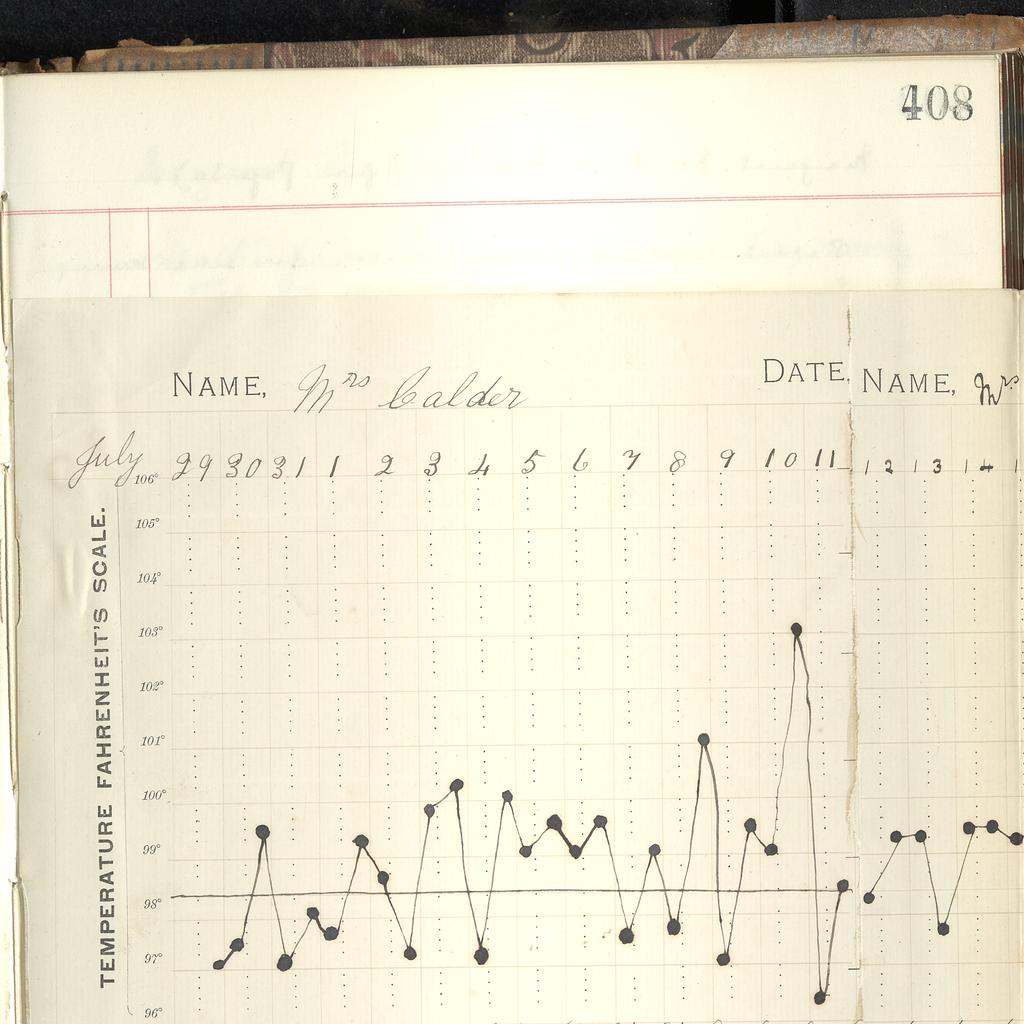 408
NAME, Mrs Calder DATE,
NAME, Mrs
July 29 30 31 1 2 3 4 5 6 7 8 9 10 11
12 13 14 1
TEMPERATURE FAHRENHEIT'S SCALE.
106°
105°
104°
103°
102°
101°
100°
99°
98°
97°
96°